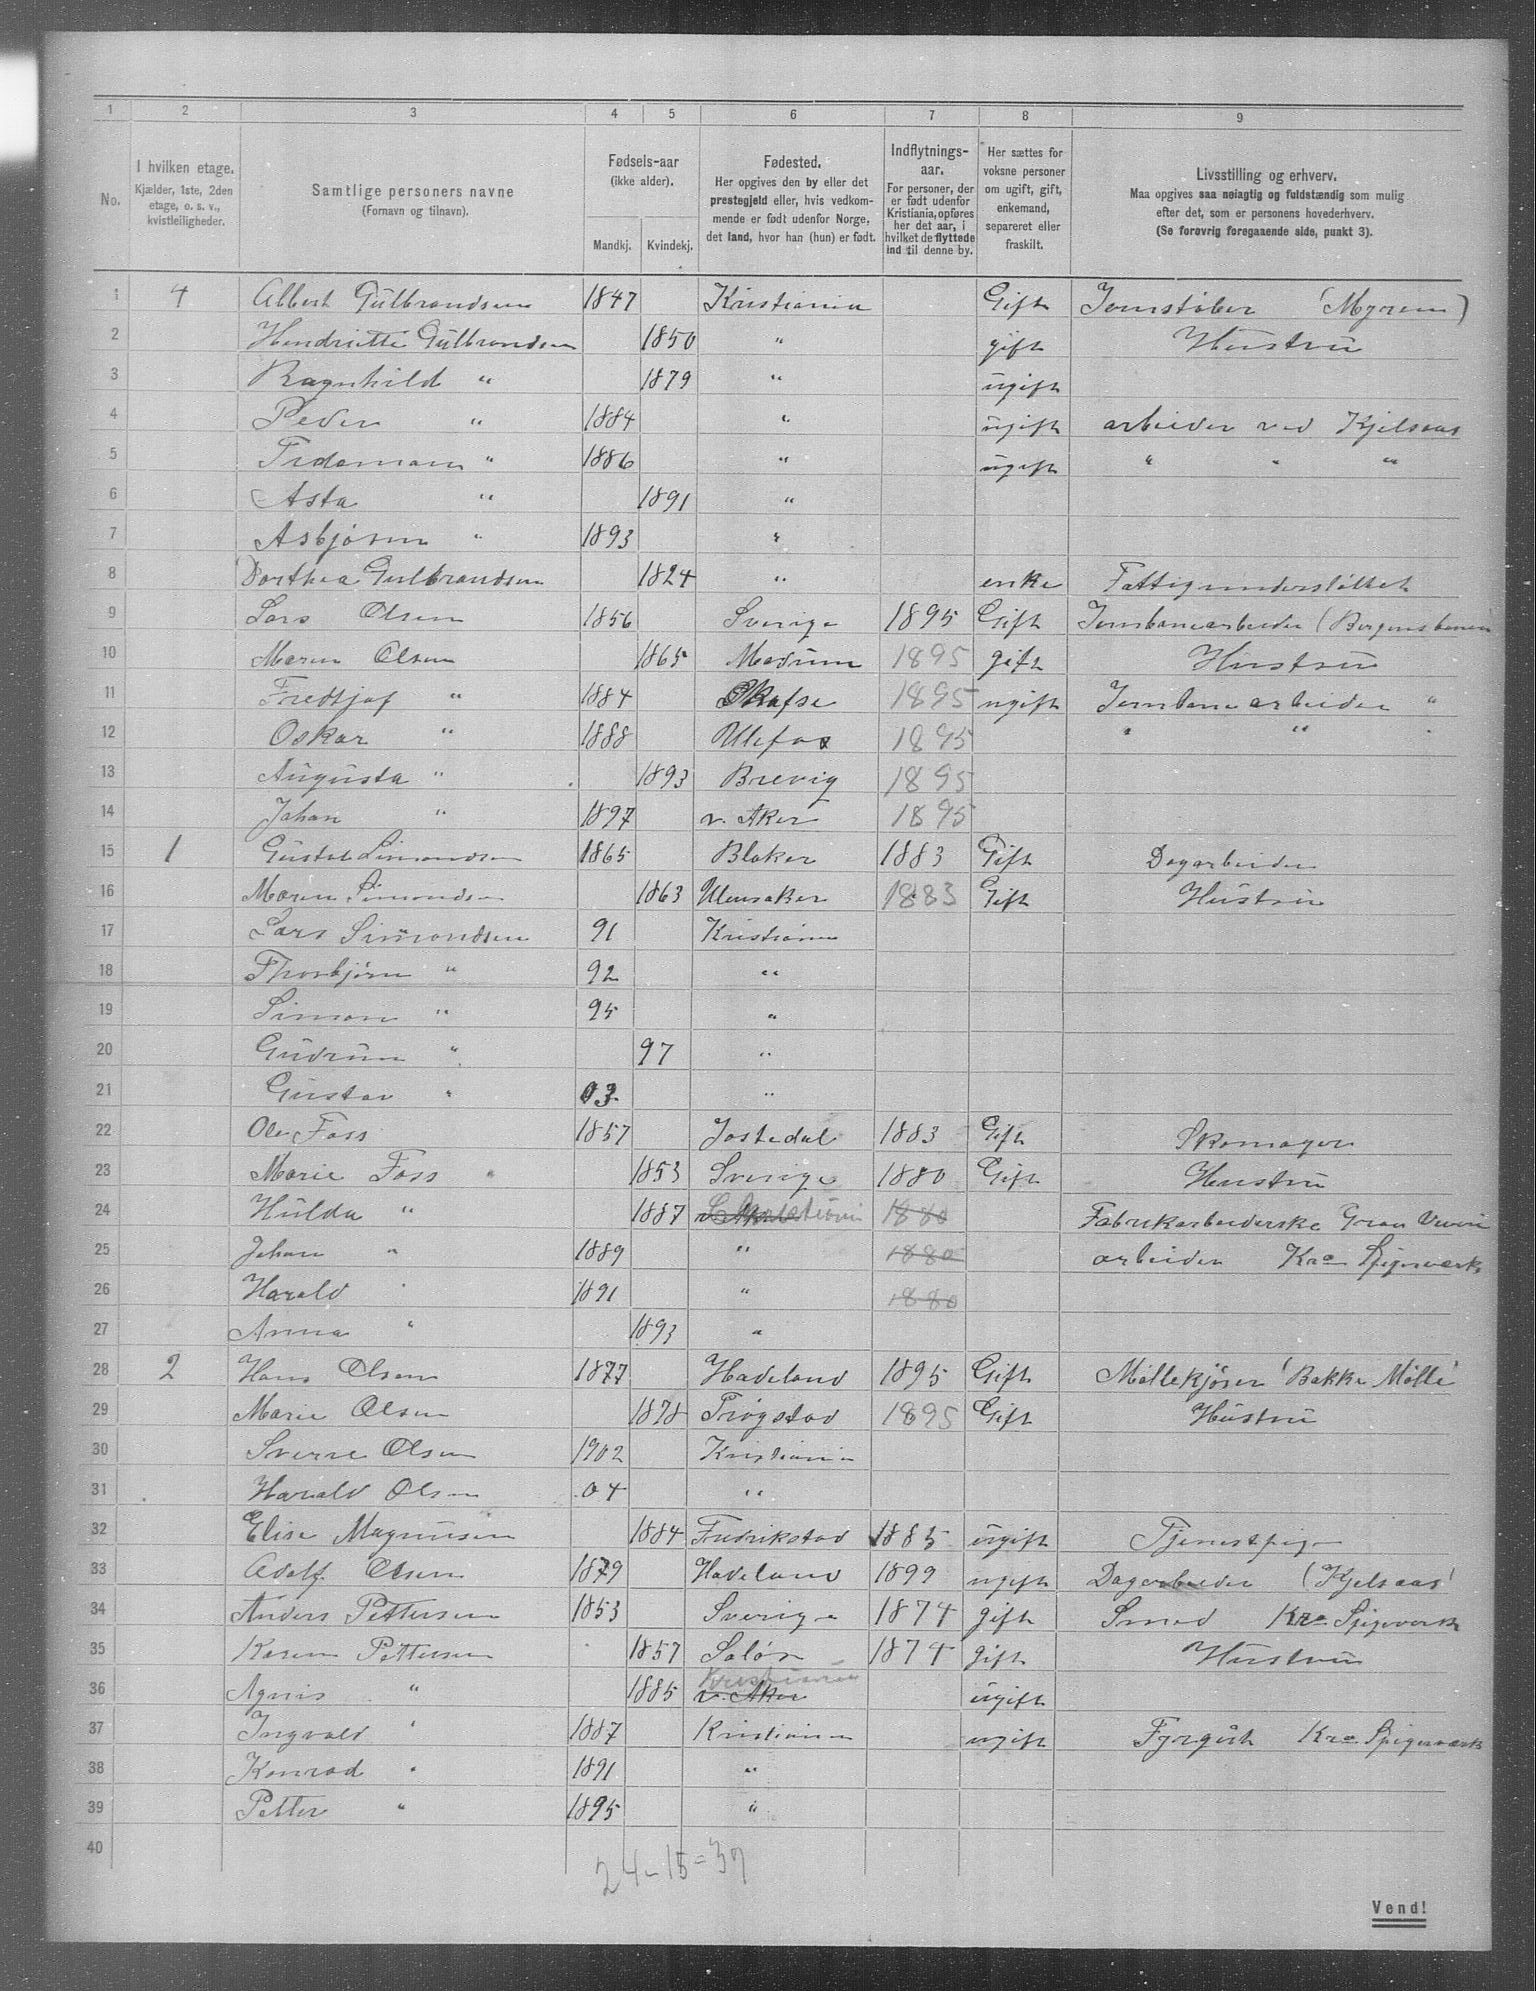 1 2 3 4 5 6 7 8 9
No.
I hvilken etage.
Kjælder, 1ste, 2den
etage, o. s. v.,
kvistleiligheder.
Samtlige personers navne
(Fornavn og tilnavn).
Fødsels-aar
(ikke alder).
Mandkj. Kvindekj.
Fødested.
Her opgives den by eller det
prestegjeld eller, hvis vedkom-
mende er født udenfor Norge,
det land, hvor han (hun) er født.
Indflytnings-
aar.
For personer, der
er født udenfor
Kristiania, opføres
her det aar, i
hvilket de flyttede
ind til denne by.
Her sættes for
voksne personer
om ugift, gift,
enkemand,
separeret eller
fraskilt.
Livsstilling og erhverv.
Maa opgives saa nøiagtig og fuldstændig som mulig
efter det, som er personens hovederhverv.
(Se forøvrig foregaaende side, punkt 3).
1 4 Albert Gulbrandsen 1847 Kristiania Gift Jernstøber (Myren)
2 Hendriette Gulbrandsen 1850 " gift Hustru
3 Ragnhild " 1879 " ugift
4 Peder " 1884 " ugift arbeider ved Kjelsaas
5 Tidemann " 1886 " ugift " " "
6 Asta " 1891 "
7 Asbjørn " 1893 "
8 Dorthea Gulbrandsen 1824 " enke Fattigunderstøttet
9 Lars Olsen 1856 Sverige 1895 Gift Jernbanearbeider (Bergensbanen
10 Maren Olsen 1865 Modum 1895 gift Hustru
11 Fredtjof " 1884 1895 ugift Jernbanearbeider "
12 Oskar " 1888 Ulefos 1895 " " "
13 Augusta " 1893 Brevig 1895
14 Johan " 1897 v. Aker 1895
15 1 Gustav Simondsen 1865 Blaker 1883 Gift Dagarbeider
16 Maren Simondsen 1863 Ullensaker 1883 Gift Hustru
17 Lars Simondsen 91 Kristiania
18 Thorbjørn " 92 "
19 Simon " 95 "
20 Gudrun " 97 "
21 Gustav " 03 "
22 Ole Foss 1857 Jostedal 1883 Gift Skomager
23 Marie Foss 1853 Sverige 1880 Gift Hustru
24 Hulda " 1887 1880 Fabrikarbeiderske
25 Johan " 1889 " 1880 arbeider Kra Spigerværk
26 Harald " 1891 " 1880
27 Anna " 1893 "
28 2 Hans Olsen 1877 Hadeland 1895 Gift Møllekjører (Bakke Mølle)
29 Marie Olsen 1878 Trøgstad 1895 Gift Hustru
30 Sverre Olsen 1902 Kristiania
31 Harald Olsen 04 "
32 Elise Magnusen 1884 Fredrikstad 1885 ugift Tjenestpige
33 Adolf Olsen 1879 Hadeland 1899 ugift Dagarbeider (Kjelsaas)
34 Anders Pettersen 1853 Sverige 1874 gift Smed Kra Spigerverk
35 Karen Pettersen 1857 Solør 1874 gift Hustru
36 Agnis " 1885 Kristiania v. Aker ugift
37 Ingvald " 1887 Kristiania ugift Kra Spigerværk
38 Konrad " 1891 "
39 Petter " 1895 "
40
24-15=39
Vend!